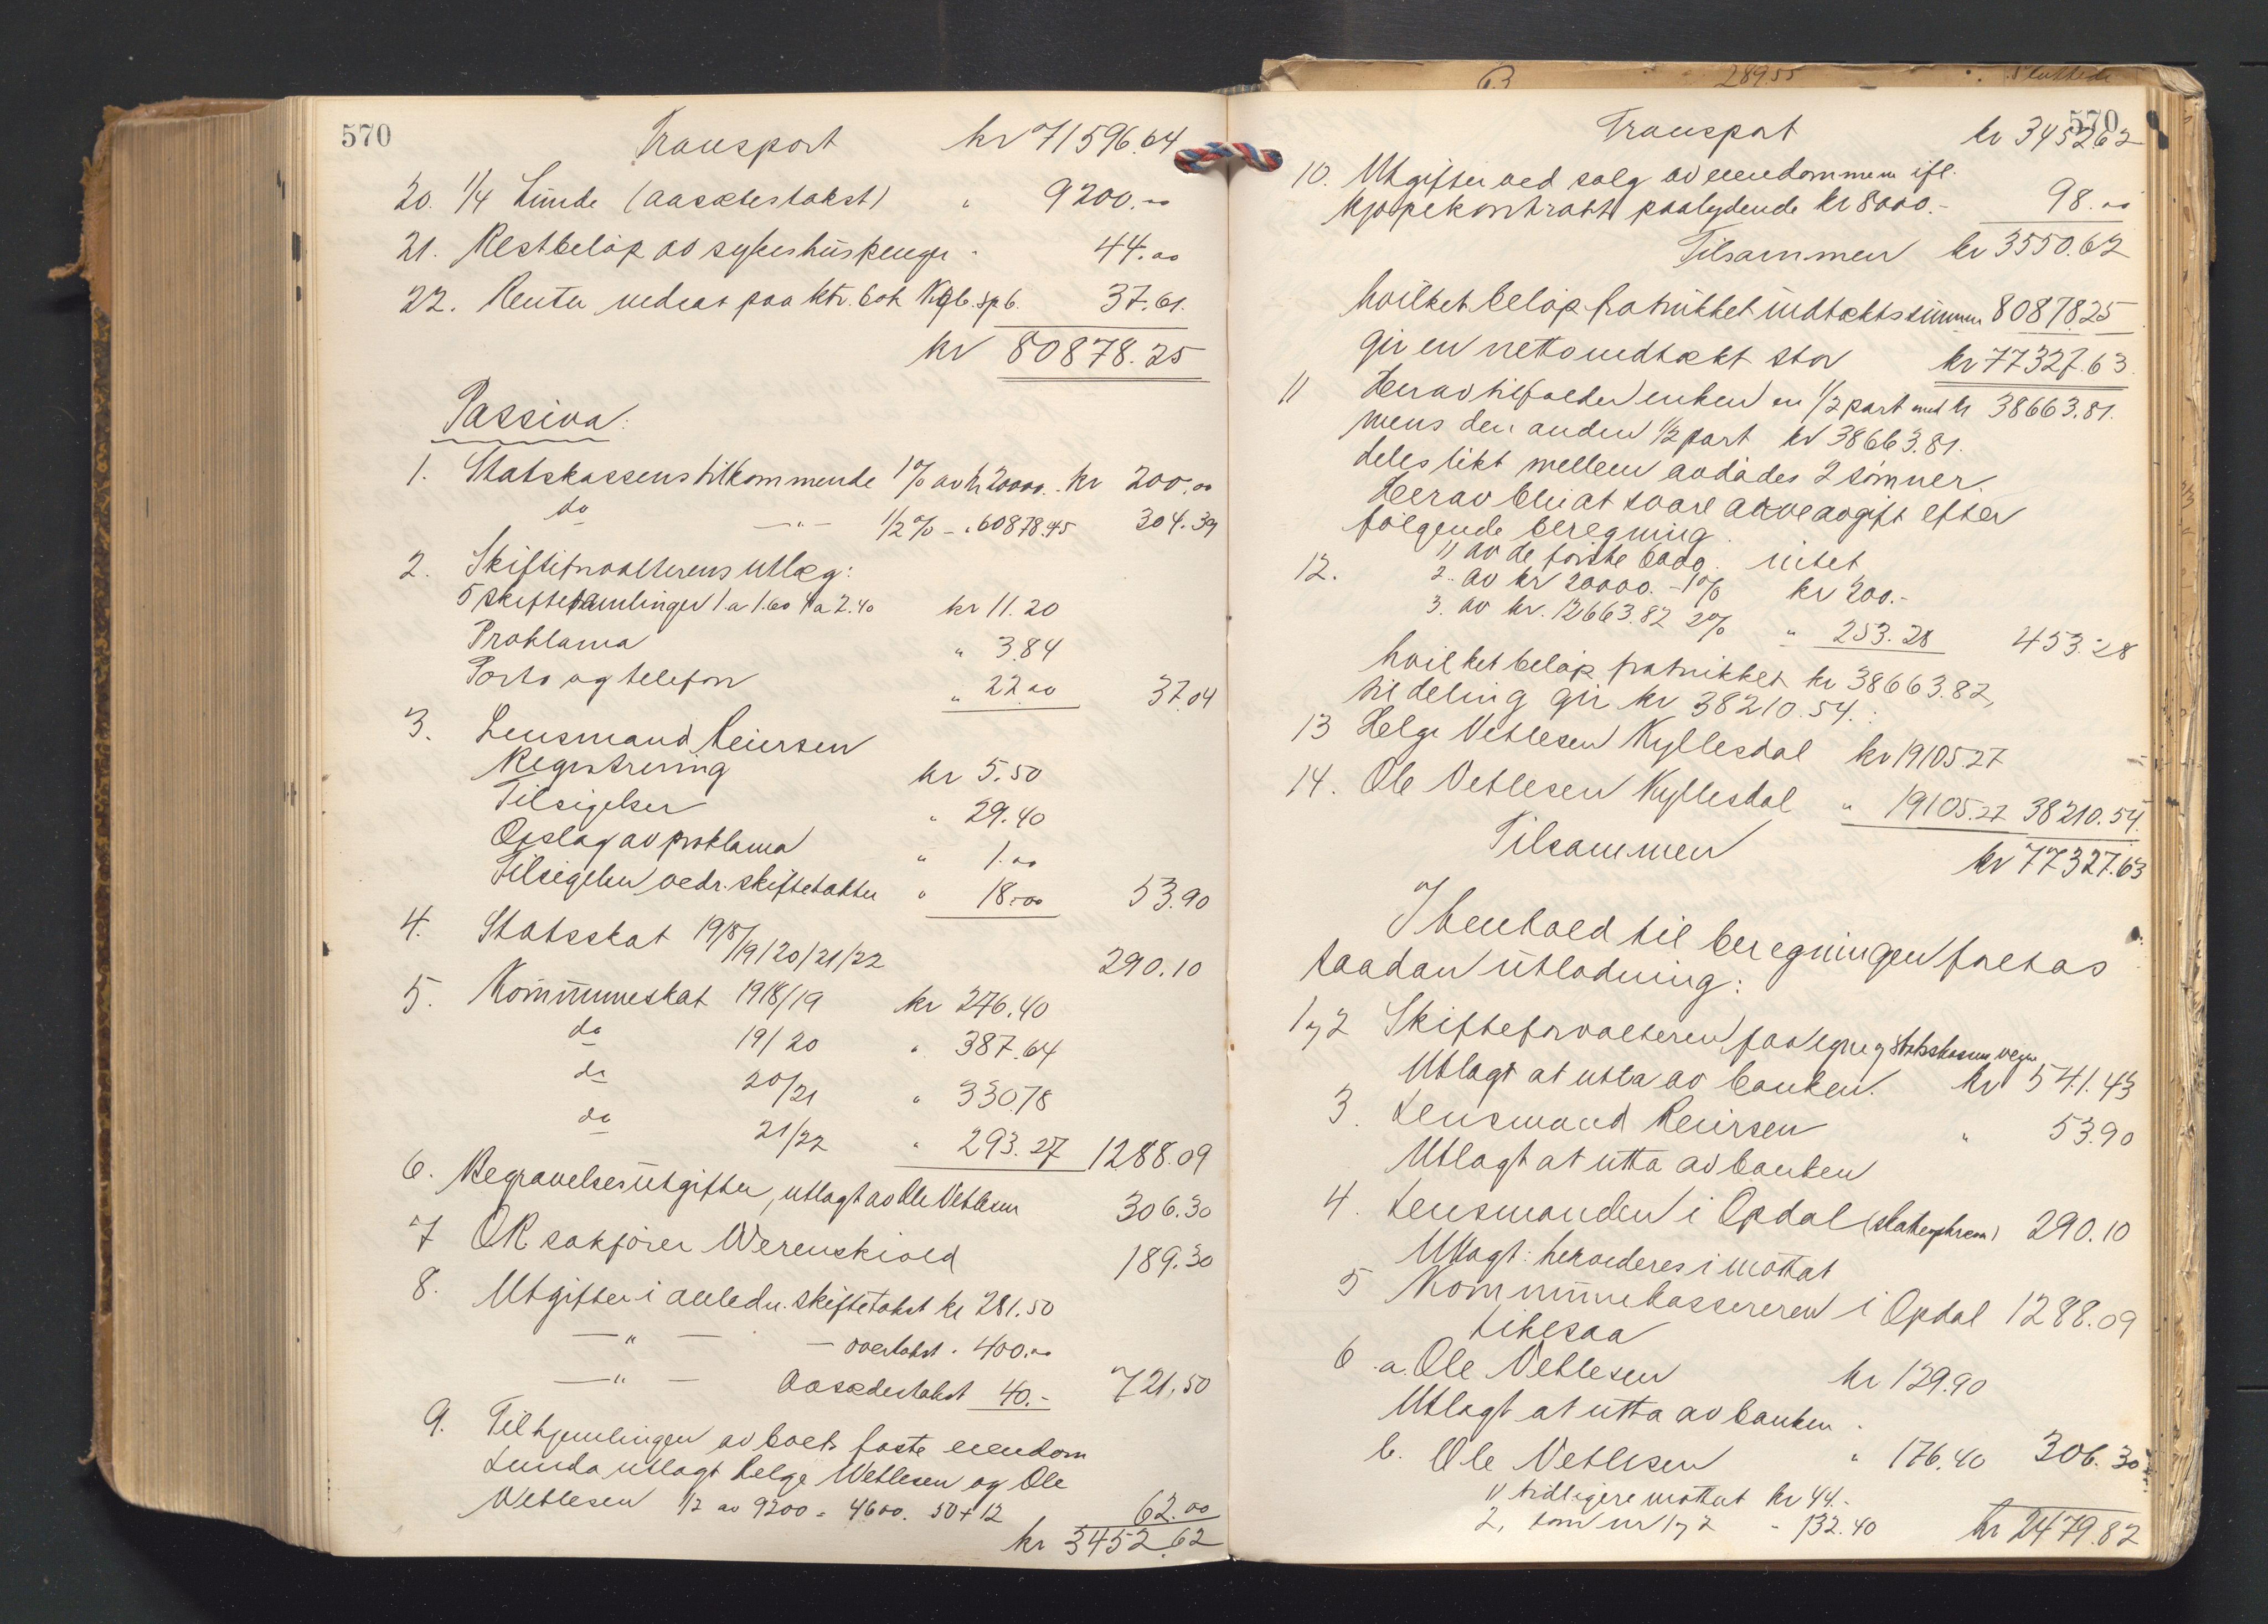 570
Transport kr 71596.64
20. 1/4 Lunde (aasætestakst) " 9200.00
21. Restbeløp av sykehuspenger " 44.00
22. Renter indsat paa ktr. bok Kgb. spb. 37.61.
kr 80878.25
Passiva:
1. Statskassens tilkommende 1% av kr 20000. kr 200.00
do — " — 1/2% - " 60878.45 304.39
2. Skifteforvalterens utlæg:
5 skiftesamlinger 1 a 1.60 4 a 2.40 kr 11.20
Proklama " 3.84
Porto og telefon " 22.00 37.04
3. Lensmand Reiersen
Registrering kr 5.50
Tilsigelser " 29.40
Opslag av proklama " 1.00
Tilsigelser vedr. skiftetakster " 18.00 53.90
4. Statsskat 1918/19/20/21/22 290.10
5. Kommuneskat 1918/19 kr 276.40
do 19/20 " 387.64
do 20/21 " 330.78
do 21/22 " 293.27 1288.09
6. Begravelsesutgifter, utlagt av Ole Vetlesen 306.30
7 OR sakfører Werenskiold 189.30
8. Utgifter i anledn. skiftetakst kr 281.50
— " — — overtakst " 400.00
— " — Aasædestakst 40.- 721,50
9. Til hjemlingen av boets faste eiendom
Lunda utlagt Helge Vetlesen og Ole
Vetlesen 1/2 av 9200 = 4600. 50 + 12 62.00
kr 3452.62
63 289.55 Sluttede
570
Transport kr 3452.62
10. Utgifter ved salg av eiendommen ifl.
kjøpekontrakt paalydende kr 8000.- 98.00
Tilsammen kr 3550.62
hvilket beløp fratrukket indtektssummen 80878.25
gir en nettoindtækt stor kr 77327.63.
11 Herav tilfalder enken en 1/2 part med kr 38663.81.
mens den anden 1/2 part kr 38663.81.
deles likt mellem avdødes 2 sønner.
Herav blir at svare arveavgift efter
følgende beregning.
12. 1) av de første 6000. intet
2. av kr 20000. - 1% kr 200.-
3. av kr. 12663.82 2% " 253.28 453.28
hvilket beløp fratrukket kr 38663.82,
til deling gir kr 38210.54.:
13 Helge Vetlesen Kyllesdal kr 19105.27
14. Ole Vetlesen Kyllesdal " 19105.27 38210.54.
Tilsammen kr 77327.63
I henhold til beregningen foretas
saadan utlodning:
1 og 2 Skifteforvalteren paa egne og statskassens vegne
Utlagt at utta av banken. kr 541.43
3. Lensmand Reiersen " 53.90
Utlagt at utta av banken
4. Lensmanden i Opdal 290.10
Utlagt: henholderes i mottat
5 Kommunekassereren i Opdal 1288.09
Likesaa
6 a. Ole Vetlesen kr 129.90
Utlagt at utta av banken.
b. Ole Vetlesen " 176.40 306.30
1) tidligere mottat kr 44.-
2, som nr 1 og 2 - 132.40 kr 2479.82